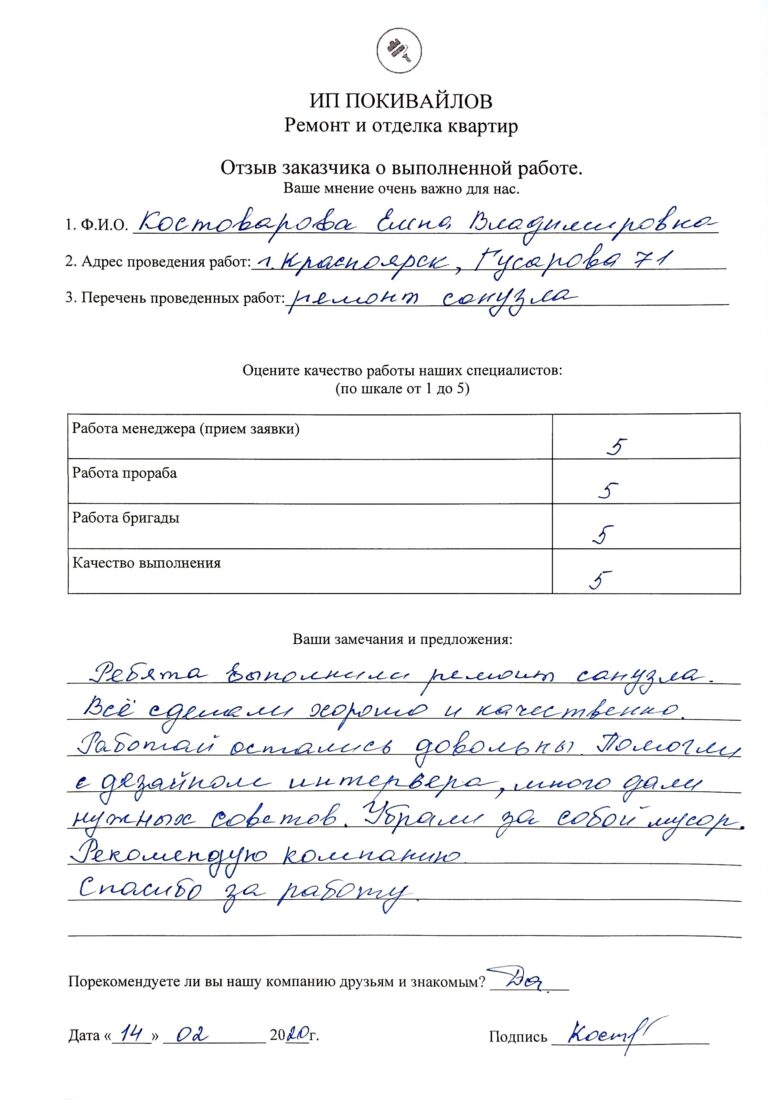 ИП ПОКИВАЙЛОВ
Ремонт и отделка квартир
Отзыв заказчика о выполненной работе.
Ваше мнение очень важно для нас.
1. Ф.И.О. Костоварова Елена Владимировна
2. Адрес проведения работ: г. Красноярск, Гусарова 71
3. Перечень проведенных работ: ремонт санузла
Оцените качество работы наших специалистов:
(по шкале от 1 до 5)
Работа менеджера (прием заявки) 5
Работа прораба 5
Работа бригады 5
Качество выполнения 5
Ваши замечания и предложения:
Ребята выполнили ремонт санузла.
Всё сделали хорошо и качественно.
Работай остались довольны. Помогли
с дезайном интервера, много дали
нужных советов. Убрали за собой мусор.
Рекомендую компанию.
Спасибо за работу.
Порекомендуете ли вы нашу компанию друзьям и знакомым? Да
Дата «14» 02 2020г. Подпись Кост